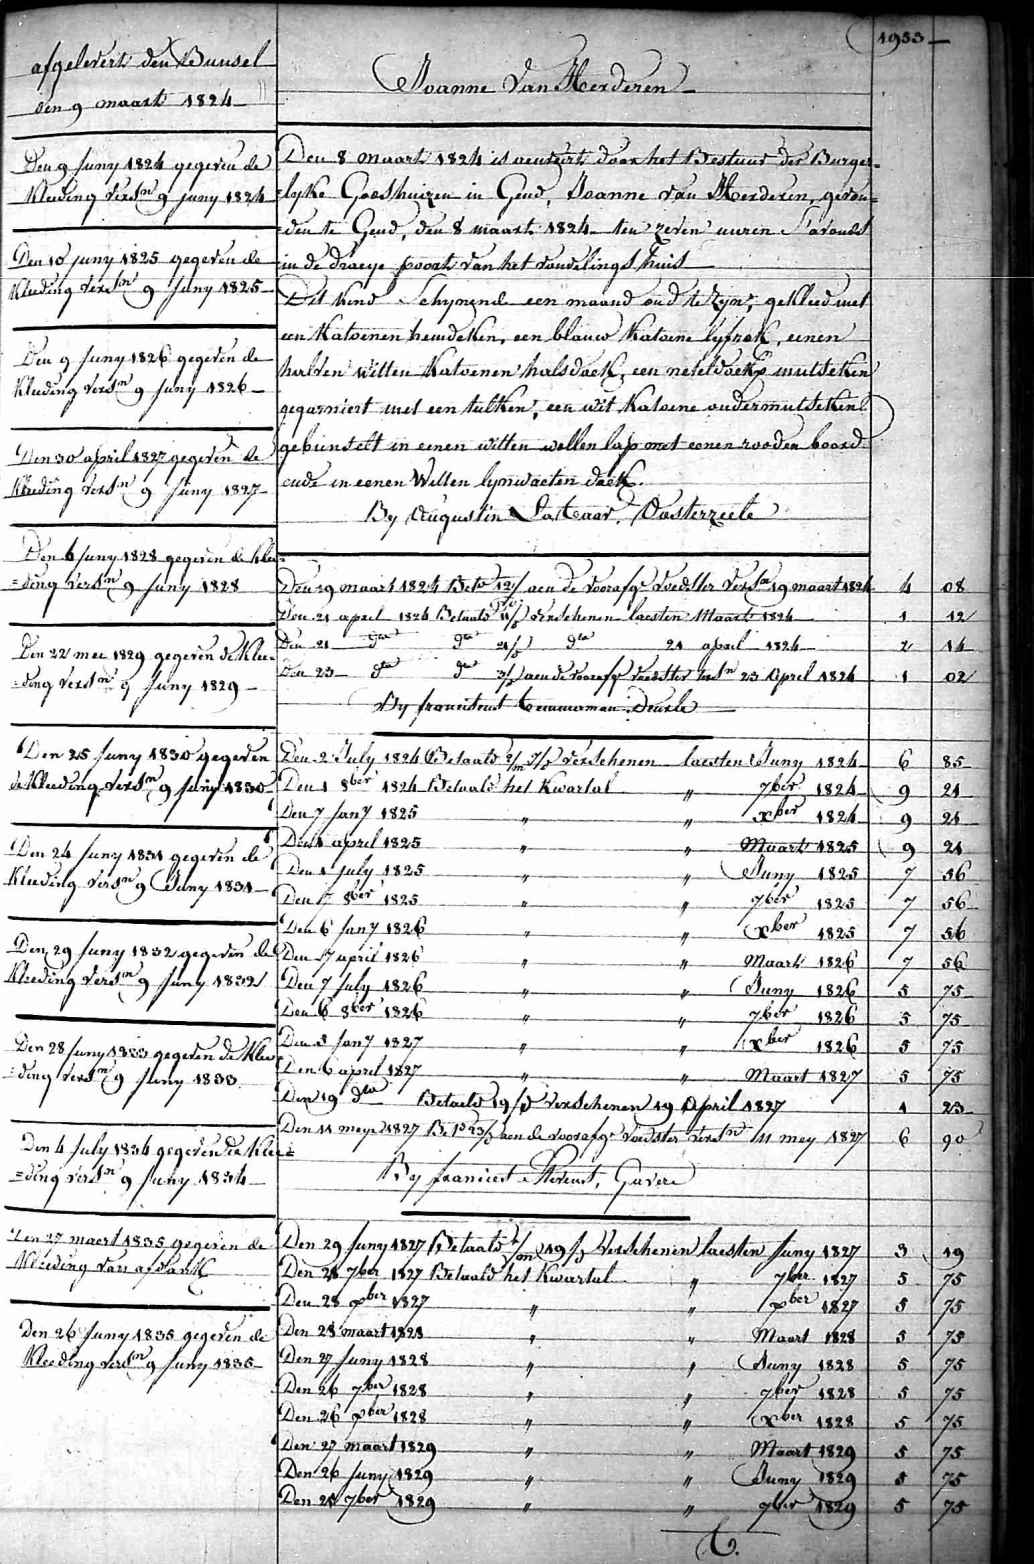 1953
afgelevert den Bunsel
den 9 maart 1824
Joanne Van Herderen
Den 9 Juny 1824 gegeven de
Kleeding versn 9 Juny 1824
Den 10 Juny 1825 gegeven de
Kleeding versn 9 Juny 1825
Den 9 Juny 1826 gegeven de
Kleeding versn 9 Juny 1826
Den 30 april 1827 gegeven de
Kleeding versn 9 Juny 1827
Den 6 Juny 1828 gegeven de Klee=
=ding versn 9 Juny 1828
Den 22 mei 1829 gegeven de Klee=
=ding versn 9 Juny 1829
Den 25 Juny 1830 gegeven
de Kleeding versn 9 Juny 1830
Den 24 Juny 1831 gegeven de
Kleeding versn 9 Juny 1831
Den 29 Juny 1832 gegeven de
Kleeding versn 9 Juny 1832
Den 28 Juny 1833 gegeven de Klee=
=ding versn 9 Juny 1833
Den 4 July 1834 gegeven de Klee=
=ding versn 9 Juny 1834
Den 27 maert 1835 gegeven de
Kleeding van
Den 26 Juny 1835 gegeven de
Kleeding versn 9 Juny 1835
Den 8 maart 1824 is door het Bestuur der Burger=
=lyke Godshuizen in Gend, Joanne van Herderen, gevon=
=den te Gend, den 8 maart 1824 ten zeven uuren S'avonds
in de draeye poort van het vondelings huis
Dit Kind Schynend een maand oud te zyn, gekleed met
een Katoenen hemdeken, een blauw Katoene lyfrok, eenen
halven witten Katoenen halsdoek, een neteldoek mutsteken
gegarniert met een tulken, een wit Katoene ondermutsteken
gebunselt in eenen witten wollen lap met eenen rooden boord
ende in eenen Witten lynwaeten doek.
By Augustin, Oosterzeele
Den 19 maart 1824 Betd 12/ aen de voorafge voedster versn 19 maart 1824 4 08
Den 21 april 1824 Betaald 11/ verschenen laesten Maart 1824 1 12
Den 21 dto dto 21/ dto 21 april 1824 2 14
Den 23 dto dto 3/ aen de voorafge voedster versn 23 April 1824 1 02
By Deurle
Den 2 July 1824 Betaald verschenen laesten Juny 1824 6 85
Den 1 8ber 1824 Betaald het Kwartal " 7ber 1824 9 21
Den 7 Jany 1825 " " xber 1824 9 21
Den 1 april 1825 " " Maart 1825 9 21
Den 1 july 1825 " " Juny 1825 7 56
Den 7 8ber 1825 " " 7ber 1825 7 56
Den 6 Jany 1826 " " xber 1825 7 56
Den 7 april 1826 " " Maart 1826 7 56
Den 7 July 1826 " " Juny 1826 5 75
Den 6 8ber 1826 " " 7ber 1826 5 75
Den 5 Jany 1827 " " xber 1826 5 75
Den 6 april 1827 " " Maart 1827 5 75
Den 19 dto Betaald 19/ Verschenen 19 April 1827 1 23
Den 11 mey 1827 aen de voorafge voedster versn 11 mey 1827 6 90
By Gavere
Den 29 Juny 1827 Betaald 19/ Verschenen laesten Juny 1827 3 19
Den 28 7ber 1827 Betaald het Kwartal " 7ber 1827 5 75
Den 28 xber 1827 " " xber 1827 5 75
Den 28 maart 1828 " " Maart 1828 5 75
Den 27 Juny 1828 " " Juny 1828 5 75
Den 26 7ber 1828 " " 7ber 1828 5 75
Den 26 xber 1828 " " xber 1828 5 75
Den 27 maart 1829 " " Maart 1829 5 75
Den 26 Juny 1829 " " Juny 1829 5 75
Den 25 7ber 1829 " " 7ber 1829 5 75